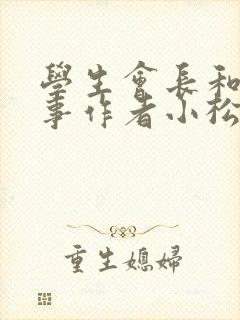 學生會長和
事作者小松
重生媳婦